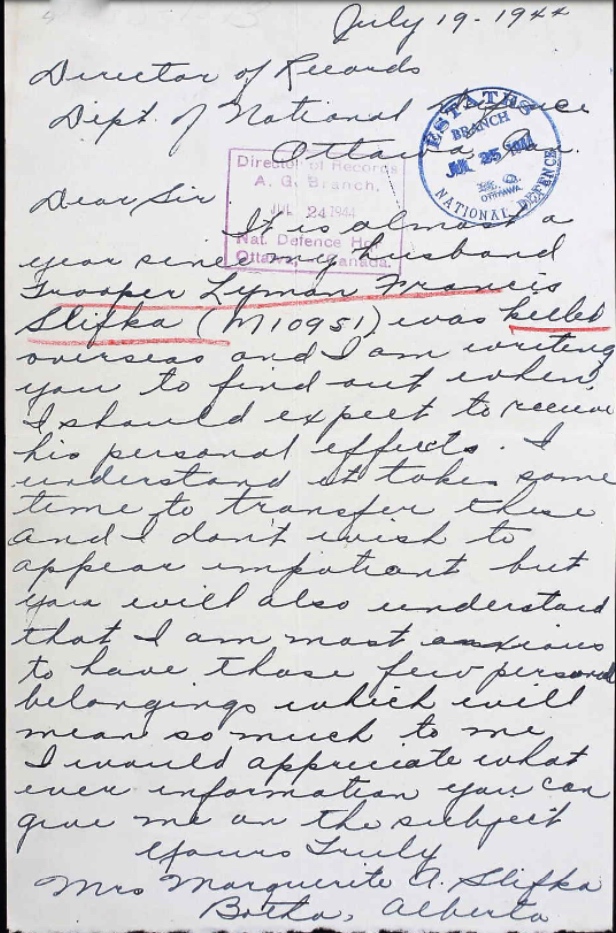 July 19-1944
Director of Records
Dept. of National Defence
Ottawa, Can.
ESTATES
BRANCH
JUL 25 1944
OTTAWA
NATIONAL DEFENCE
Director of Records
A. G. Branch,
JUL 24 1944
Nat. Defence Hq.
Ottawa, Canada.
Dear Sir
It is almost a
year since my husband
Trooper Lyman Francis
Slifka (M10951) was killed
overseas and I am writing
you to find out when
I should expect to receive
his personal effects. I
understand it takes some
time to transfer these
and I don't wish to
appear impatient but
you will also understand
that I am most anxious
to have those few personal
belongings which will
mean so much to me
I would appreciate what
ever information you can
give me on the subject
Yours Truly
Mrs Marguerite A. Slifka
Botha, Alberta